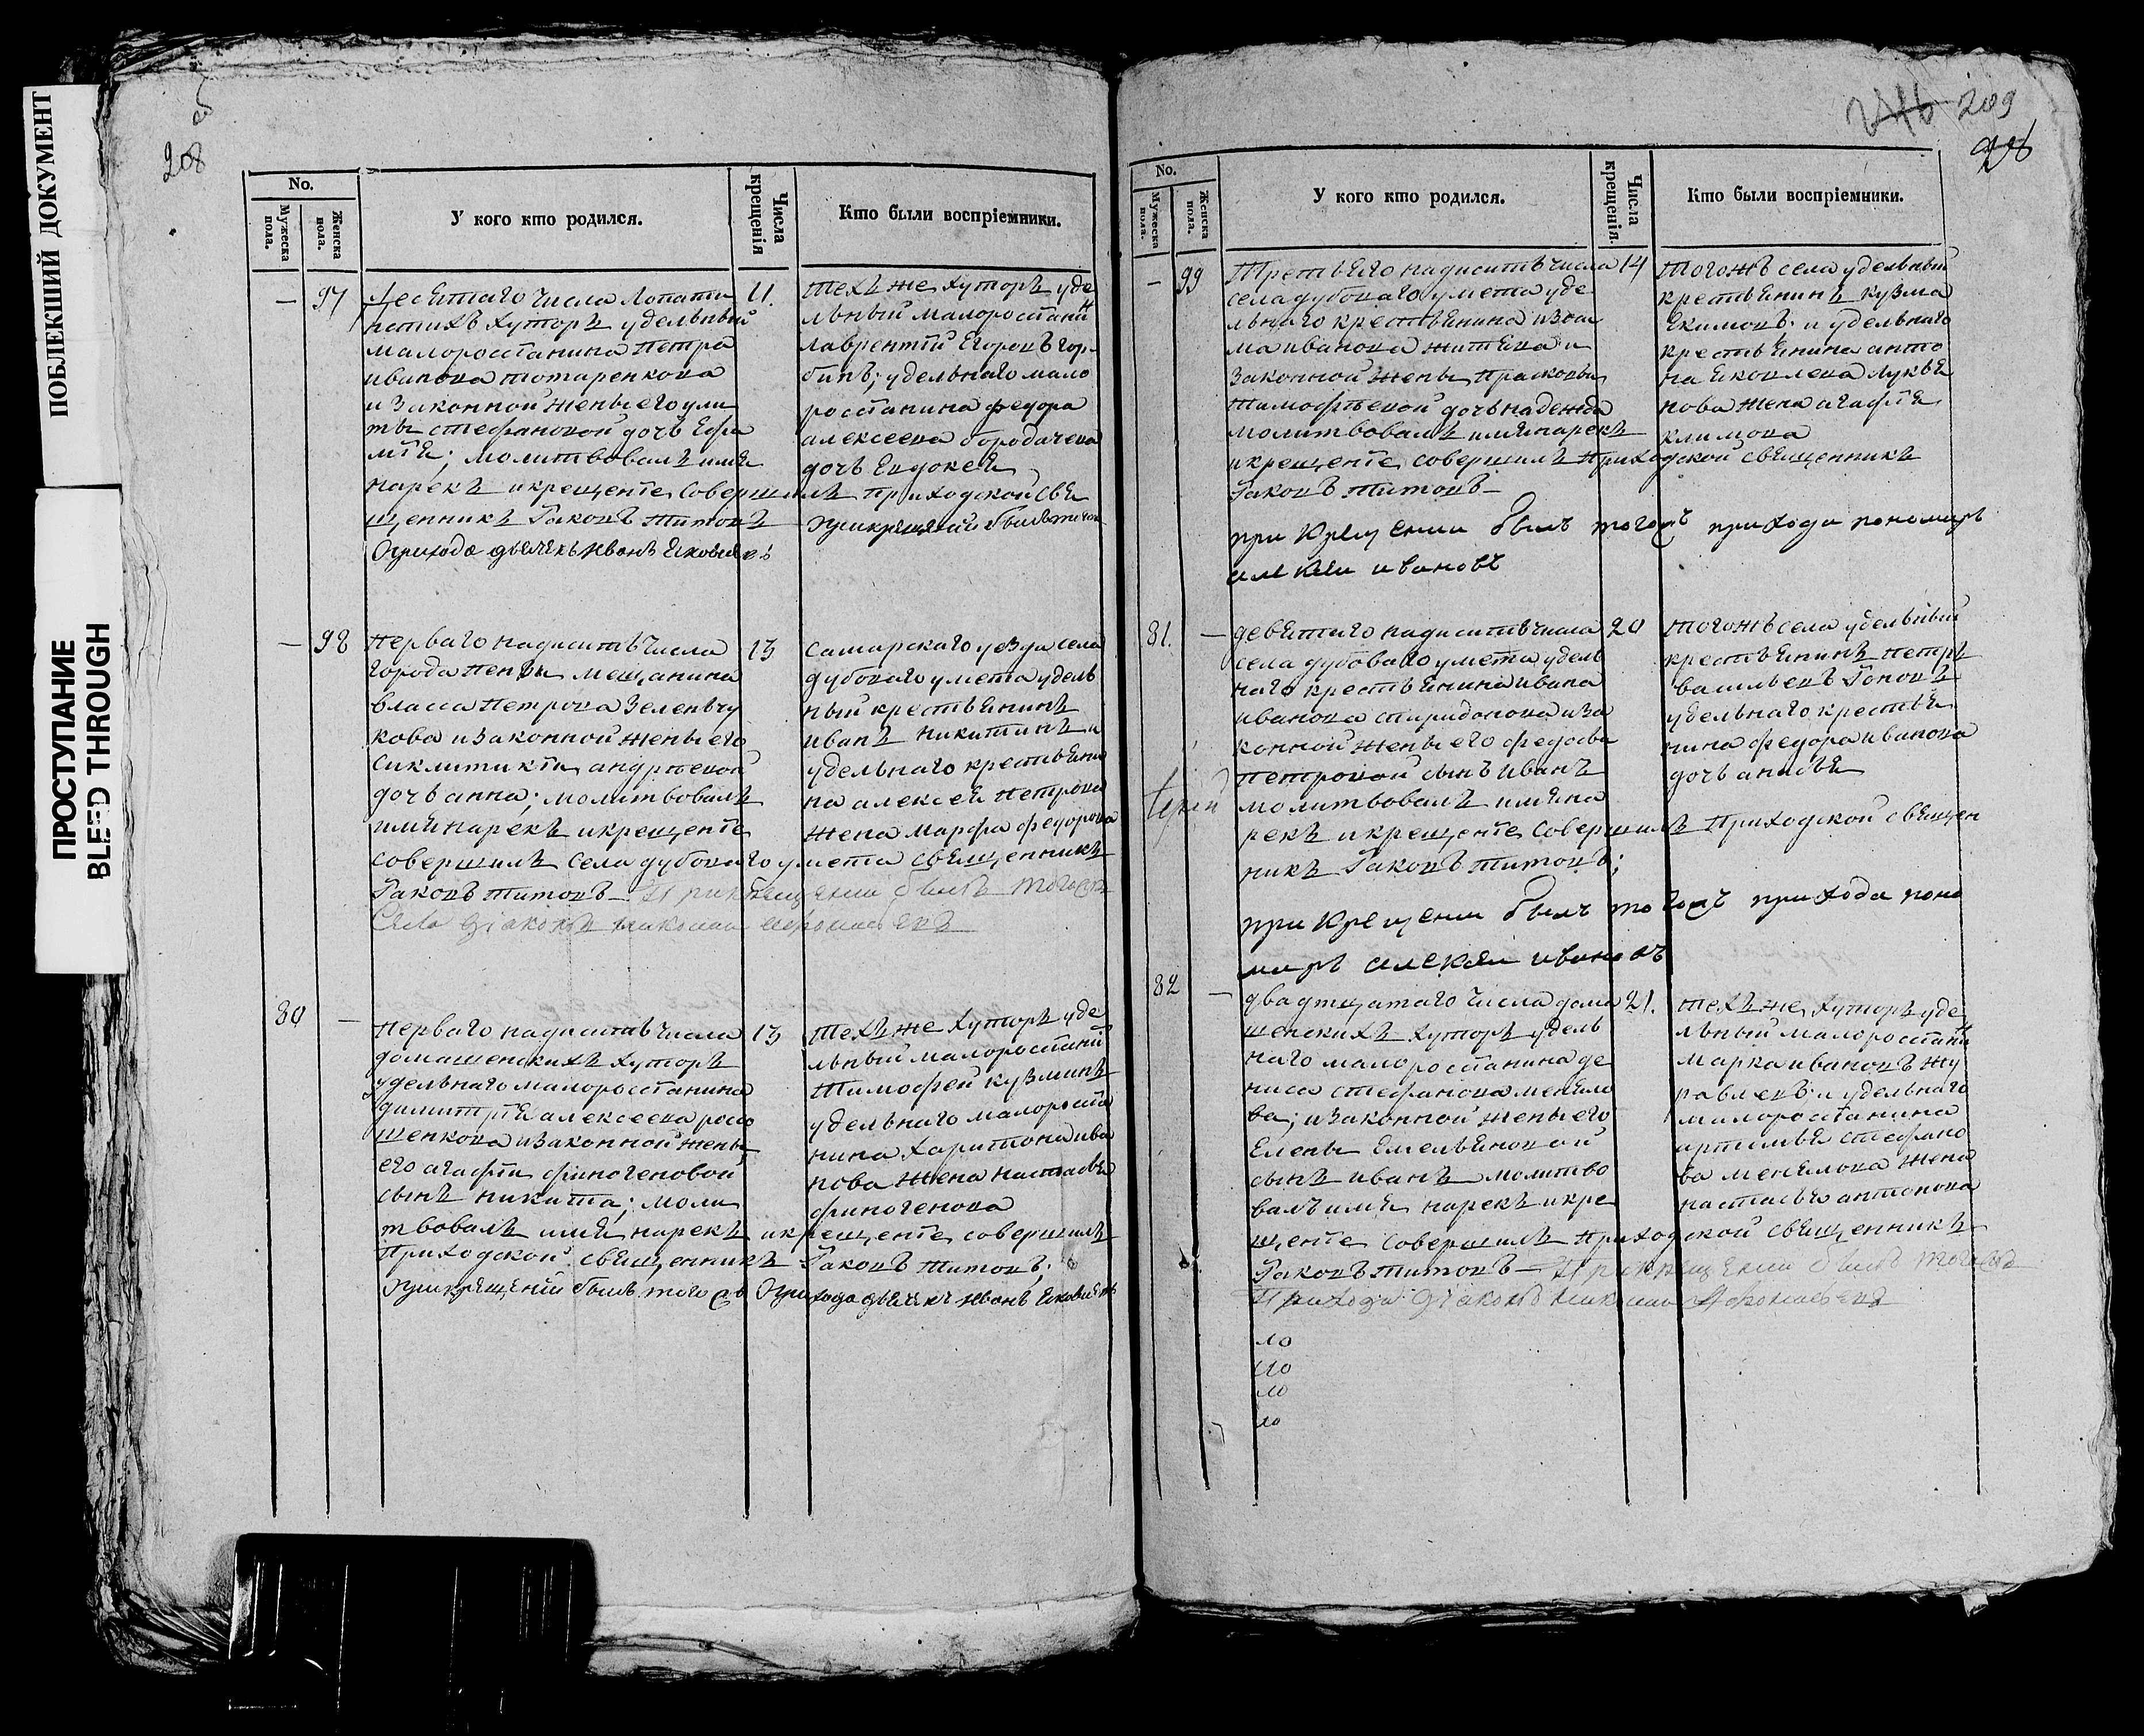 ПОБЛЕКШИЙ ДОКУМЕНТ
ПРОСТУПАНИЕ
BLEED THROUGH
208
об
No.
Мужеска пола.
Женска пола.
У кого кто родился.
Числа крещенія
Кто были воспріемники.
— 97
Десятаго числа Лопати
нскихъ хуторъ удельный
малоросіянина Петра
иванова тотаренкова
и законной жены его ули
ты стефановой дочь Ефи
мія; молитвовалъ имя
нарекъ и крещеніе совершилъ приходской свя
щенникъ Іаковъ Титовъ
11.
техъ же хуторъ уде
льный малоросіяни
лаврентій Егоровъ гор
бинъ; удельнаго мало
росіянина федора
алексеева бородачева
дочь Евдокея
прикрещеніи былъ тогожъ
прихода дьячекъ Иванъ Яковлевъ
— 98
перваго надисить числа
города Пензы мещанина
власа Петрова Зеленчу
кова и законной жены его
сиклитикіи андреевой
дочь анна; молитвовалъ
имя нарекъ и крещеніе
совершилъ села дубоваго умета священникъ
Іаковъ Титовъ — При крещеніи былъ тогожъ
села діаконъ николай
13
Самарскаго уезда села
дубоваго умета удель
ный крестьянинъ
иванъ никитинъ и
удельнаго крестьяни
на алексея петрова
жена марфа федорова
80 —
перваго надисять числа
домашенскихъ хуторъ
удельнаго малоросіянина
димитрія алексеева росо
шенкова и законной жены
его агафіи финогеновой
сынъ никита; моли
твовалъ имя нарекъ и крещеніе совершилъ
Приходской священникъ Іаковъ Титовъ;
прикрещеніи былъ тогожъ прихода дьячекъ Иванъ Яковлевъ
13
техъ же хуторъ уде
льный малоросіяни
Тимофей кузминъ
удельнаго малоросія
нина харитона ива
нова жена настасья
финогенова
209
No.
Мужеска пола.
Женска пола.
У кого кто родился.
Числа крещенія.
Кто были воспріемники.
— 99
Третьяго надисить числа
села дубоваго умета уде
льнаго крестьянина изои
ма иванова житяева и
законной жены прасковьи
тимофеевой дочь надежда
молитвовалъ имя нарекъ
и крещеніе совершилъ приходской священникъ
Іаковъ Титовъ —
14
тогожъ села удельный
крестьянинъ кузма
Екимовъ; и удельнаго
крестьянина анто
на яковлева лукья
нова жена агафія
климова
при крещении былъ тогожъ прихода пономарь
алексеи ивановъ
81. —
девятаго надисить числа
села дубоваго умета удель
наго крестьянина ивана
иванова спиридонова и за
конной жены его федосьи
петровой сынъ иванъ
молитвовалъ имя на
рекъ и крещеніе совершилъ приходской священ
никъ Іаковъ Титовъ;
20
тогожъ села удельный
крестьянинъ петръ
васильевъ
удельнаго крестья
нина федора иванова
дочь анисья
при крещении былъ тогожъ прихода поно
марь алексеи ивановъ
82 —
двадцатаго числа дома
шенскихъ хуторъ удель
наго малоросіянина де
ниса стефанова меняло
ва; и законной жены его
Елены Емельяновой
сынъ иванъ молитво
валъ имя нарекъ и кре
щеніе совершилъ приходской священникъ
Іаковъ Титовъ — При крещеніи былъ тогожъ
Прихода діаконъ николай
21.
техъ же хуторъ уде
льный малоросіяни
марка ивановъ жу
равлевъ; и удельнаго
малоросіянина
артемья стефано
ва менялова жена
настасья антонова